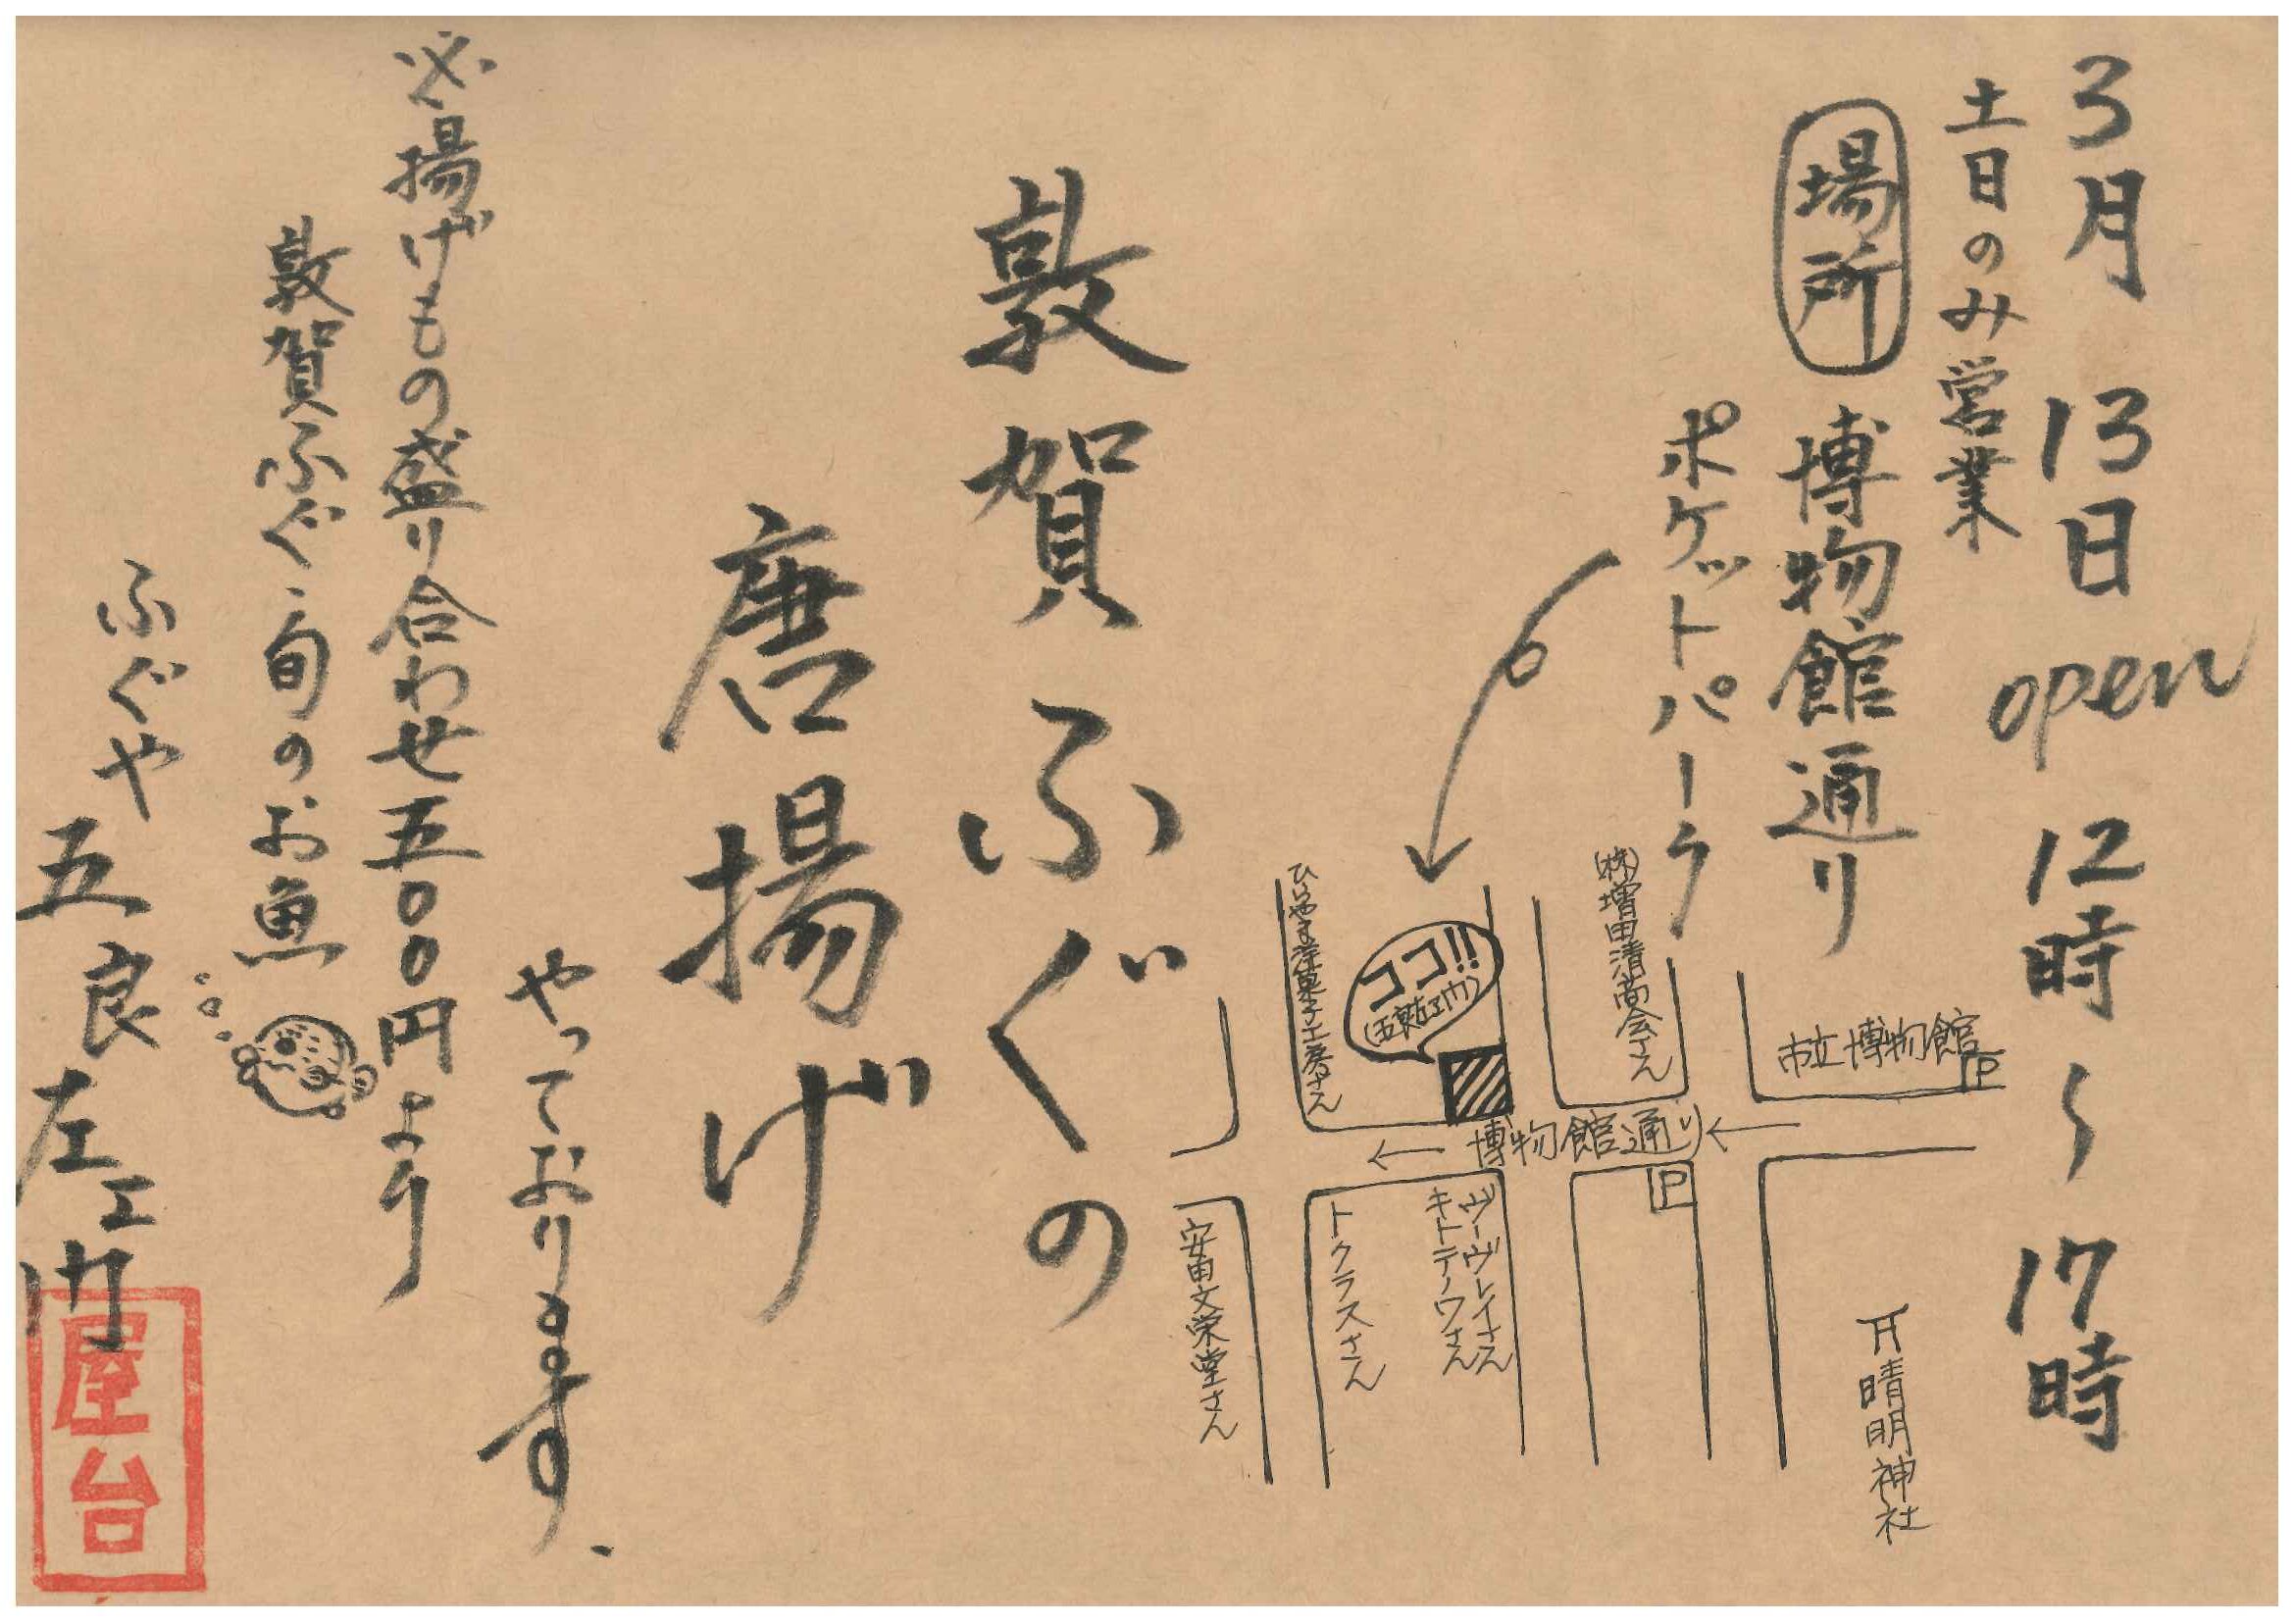 3月 13日 open 12時〜17時
土日のみ営業
場所 博物館通り
ポケットパーク
敦賀ふぐの
唐揚げ
やっております、
※揚げもの盛り合わせ五〇〇円より
敦賀ふぐ・旬のお魚
ふぐや
五良左エ門
屋台
市立博物館
P
(株)増田清商会さん
ココ!!
(五良左エ門)
ひらやま洋菓子工房さん
博物館通り
P
晴明神社
ヴーヴレイさん
キトテノワさん
トクラスさん
安田文栄堂さん